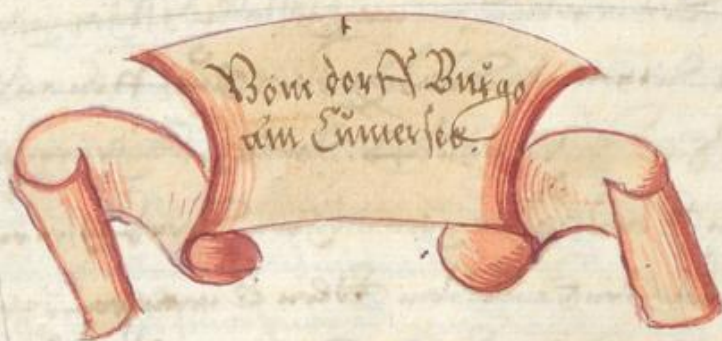 Vom dorff Burgo
am Cumersee.